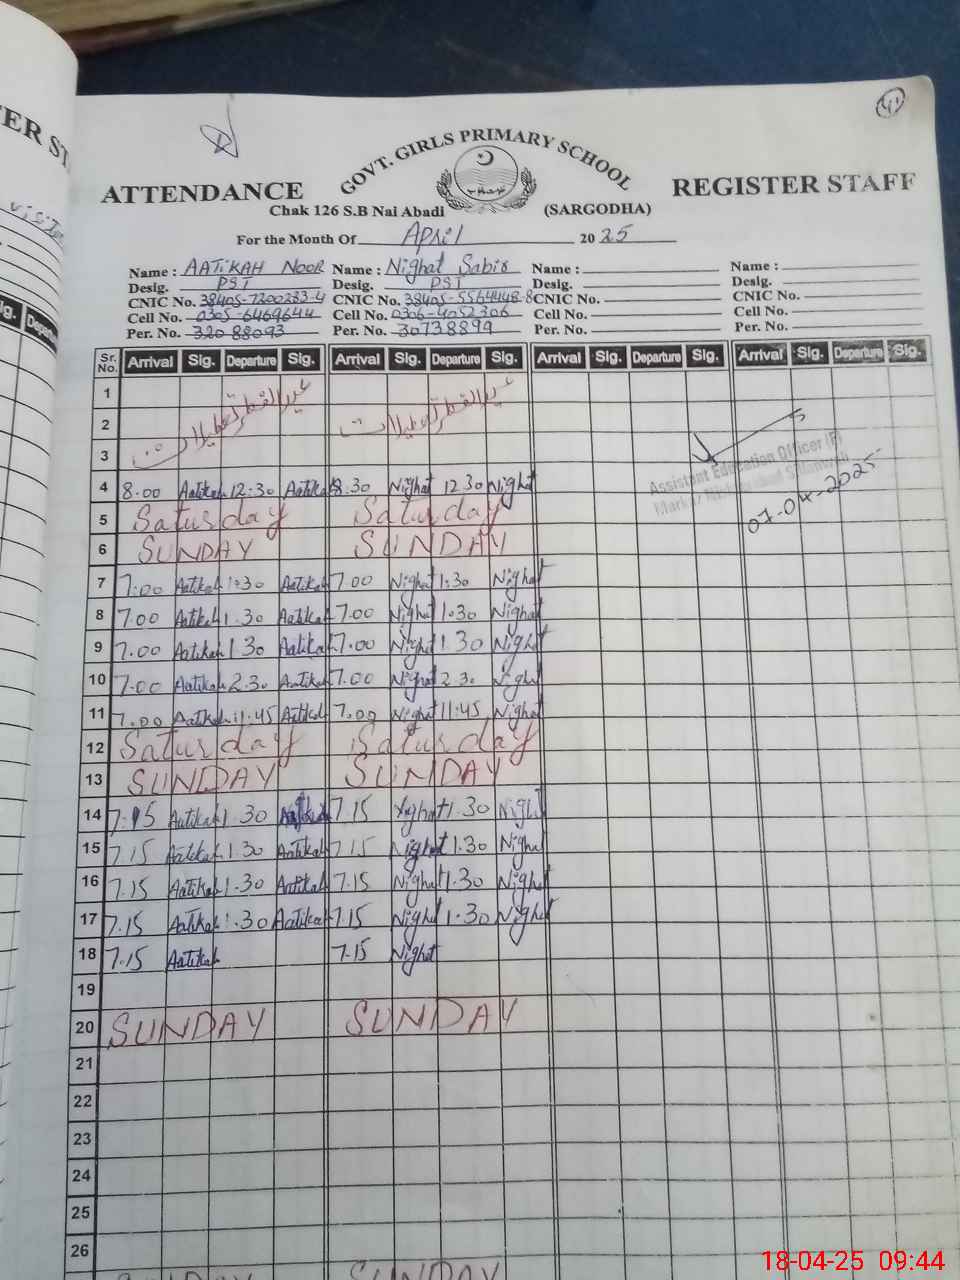 ER ST
visitor
ig. Depar
41
GOVT. GIRLS PRIMARY SCHOOL
ATTENDANCE REGISTER STAFF
Chak 126 S.B Nai Abadi (SARGODHA)
For the Month Of April 2025
Name : AATIKAH NOOR Name : Nighat Sabir Name : Name :
Desig. PST Desig. PST Desig. Desig.
CNIC No. 38405-7200283-4 CNIC No. 38405-5564448-8 CNIC No. CNIC No.
Cell No. 0305-6469644 Cell No. 0306-4052306 Cell No. Cell No.
Per. No. 32088093 Per. No. 30738899 Per. No. Per. No.
Sr. No. Arrival Sig. Departure Sig. Arrival Sig. Departure Sig. Arrival Sig. Departure Sig. Arrival Sig. Departure Sig.
1
2 عید الفطر تعطیلات عید الفطر تعطیلات
3
Assistant Education Officer (F)
Markaz
07-04-2025
4 8.00 Aatikah 12:30 Aatikah 8.30 Nighat 12 30 Nighat
5 Saturday Saturday
6 SUNDAY SUNDAY
7 7:00 Aatikah 1:30 Aatikah 7.00 Nighat 1:30 Nighat
8 7.00 Aatikah 1.30 Aatikah 7.00 Nighat 1.30 Nighat
9 7.00 Aatikah 1 30 Aatikah 7.00 Nighat 1.30 Nighat
10 7.00 Aatikah 2.30 Aatikah 7.00 Nighat 2.30 Nighat
11 7.00 Aatikah 11:45 Aatikah 7.00 Nighat 11:45 Nighat
12 Saturday Saturday
13 SUNDAY SUNDAY
14 7:15 Aatikah 1.30 Aatikah 7.15 Nighat 1.30 Nighat
15 7.15 Aatikah 1.30 Aatikah 7.15 Nighat 1.30 Nighat
16 7.15 Aatikah 1.30 Aatikah 7.15 Nighat 1.30 Nighat
17 7.15 Aatikah 1.30 Aatikah 7.15 Nighat 1.30 Nighat
18 7.15 Aatikah 7.15 Nighat
19
20 SUNDAY SUNDAY
21
22
23
24
25
26
SUNDAY SUNDAY
18-04-25 09:44